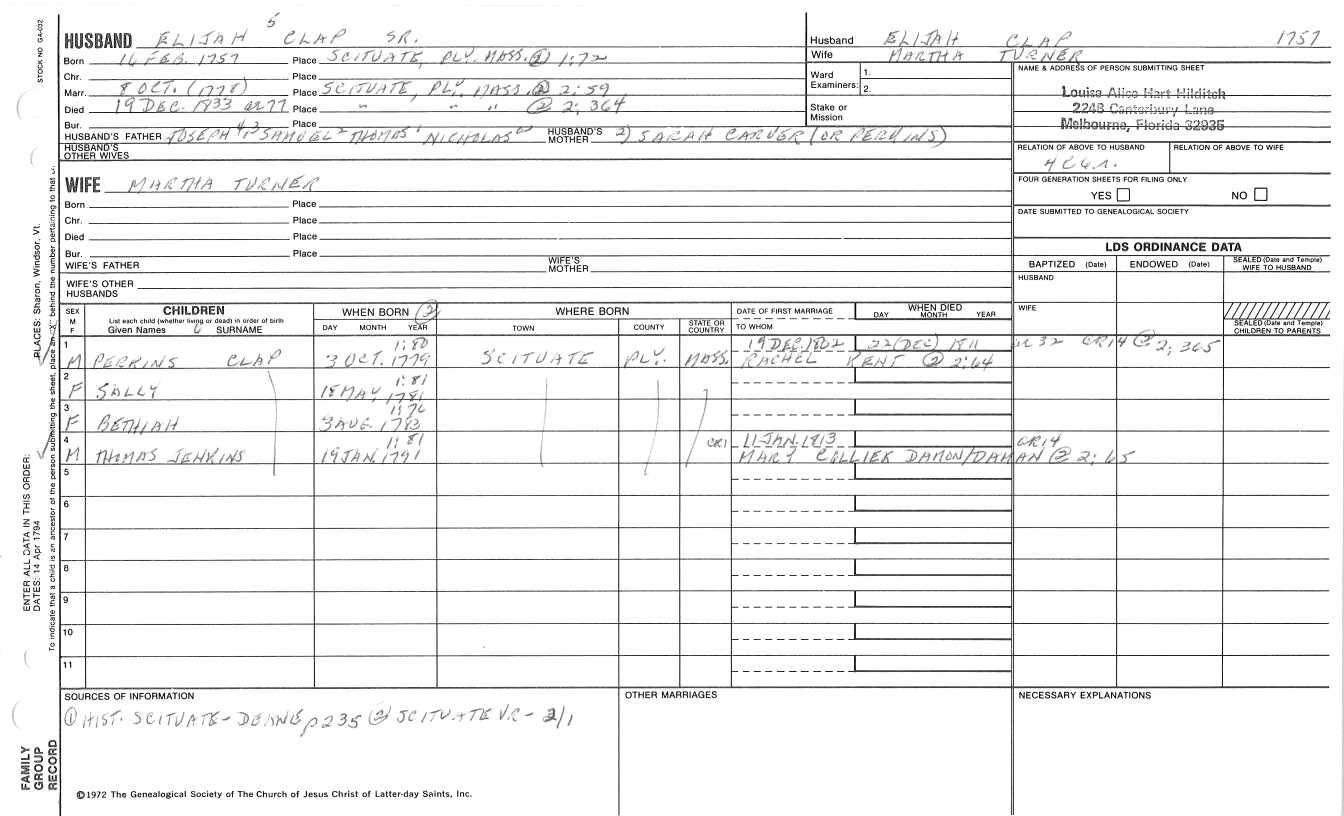 STOCK NO GA-032
5
HUSBAND ELIJAH CLAP SR.
Born 16 FEB. 1757 Place SCITUATE, PLY. MASS. ② 1:72
Chr. Place
Marr. 8 OCT. (1778) Place SCITUATE, PLY. MASS. ② 2:59
Died 19 DEC. 1833 ae 77 Place " " " ② 2; 364
Bur. Place
HUSBAND'S FATHER JOSEPH 4 SAMUEL 3 THOMAS NICHOLAS HUSBAND'S MOTHER 2) SARAH CARVER (OR PERKINS)
HUSBAND'S OTHER WIVES
Husband ELIJAH CLAP 1757
Wife MARTHA TURNER
Ward Examiners: 1.
2.
Stake or Mission
NAME & ADDRESS OF PERSON SUBMITTING SHEET
Louise Alice Hart Hilditch
2248 Canterbury Lane
Melbourne, Florida 32935
RELATION OF ABOVE TO HUSBAND RELATION OF ABOVE TO WIFE
FOUR GENERATION SHEETS FOR FILING ONLY
YES NO
DATE SUBMITTED TO GENEALOGICAL SOCIETY
WIFE MARTHA TURNER
Born Place
Chr. Place
Died Place
Bur. Place
WIFE'S FATHER WIFE'S MOTHER
WIFE'S OTHER HUSBANDS
LDS ORDINANCE DATA
BAPTIZED (Date) ENDOWED (Date) SEALED (Date and Temple) WIFE TO HUSBAND
HUSBAND
WIFE
SEALED (Date and Temple) CHILDREN TO PARENTS
SEX M F
CHILDREN
List each child (whether living or dead) in order of birth
Given Names 6 SURNAME
WHEN BORN ②
DAY MONTH YEAR
WHERE BORN
TOWN COUNTY STATE OR COUNTRY
DATE OF FIRST MARRIAGE
TO WHOM
WHEN DIED
DAY MONTH YEAR
1 1:80 19 DEC. 1802 22 (DEC) 1811 ae 32 GR14 ② 2; 365
M PERKINS CLAP 3 OCT. 1779 SCITUATE PLY. MASS. RACHEL KENT ② 2:64
2 1:81
F SALLY 18 MAY 1781
3 1:76
F BETHIAH 3 AUG. 1783
4 1:81 CR1 11 JAN. 1813 GR14
M THOMAS JENKINS 19 JAN. 1791 MARY COLLIER DAMON/DAMAN ② 2; 65
5
6
7
8
9
10
11
SOURCES OF INFORMATION
① HIST. SCITUATE - DEANE p 235 ② SCITUATE V.R. - 2/1
OTHER MARRIAGES
NECESSARY EXPLANATIONS
©1972 The Genealogical Society of The Church of Jesus Christ of Latter-day Saints, Inc.
FAMILY GROUP RECORD
ENTER ALL DATA IN THIS ORDER:
DATES: 14 Apr 1794
PLACES: Sharon, Windsor, Vt.
To indicate that a child is an ancestor of the person submitting the sheet, place an "X" behind the number pertaining to that